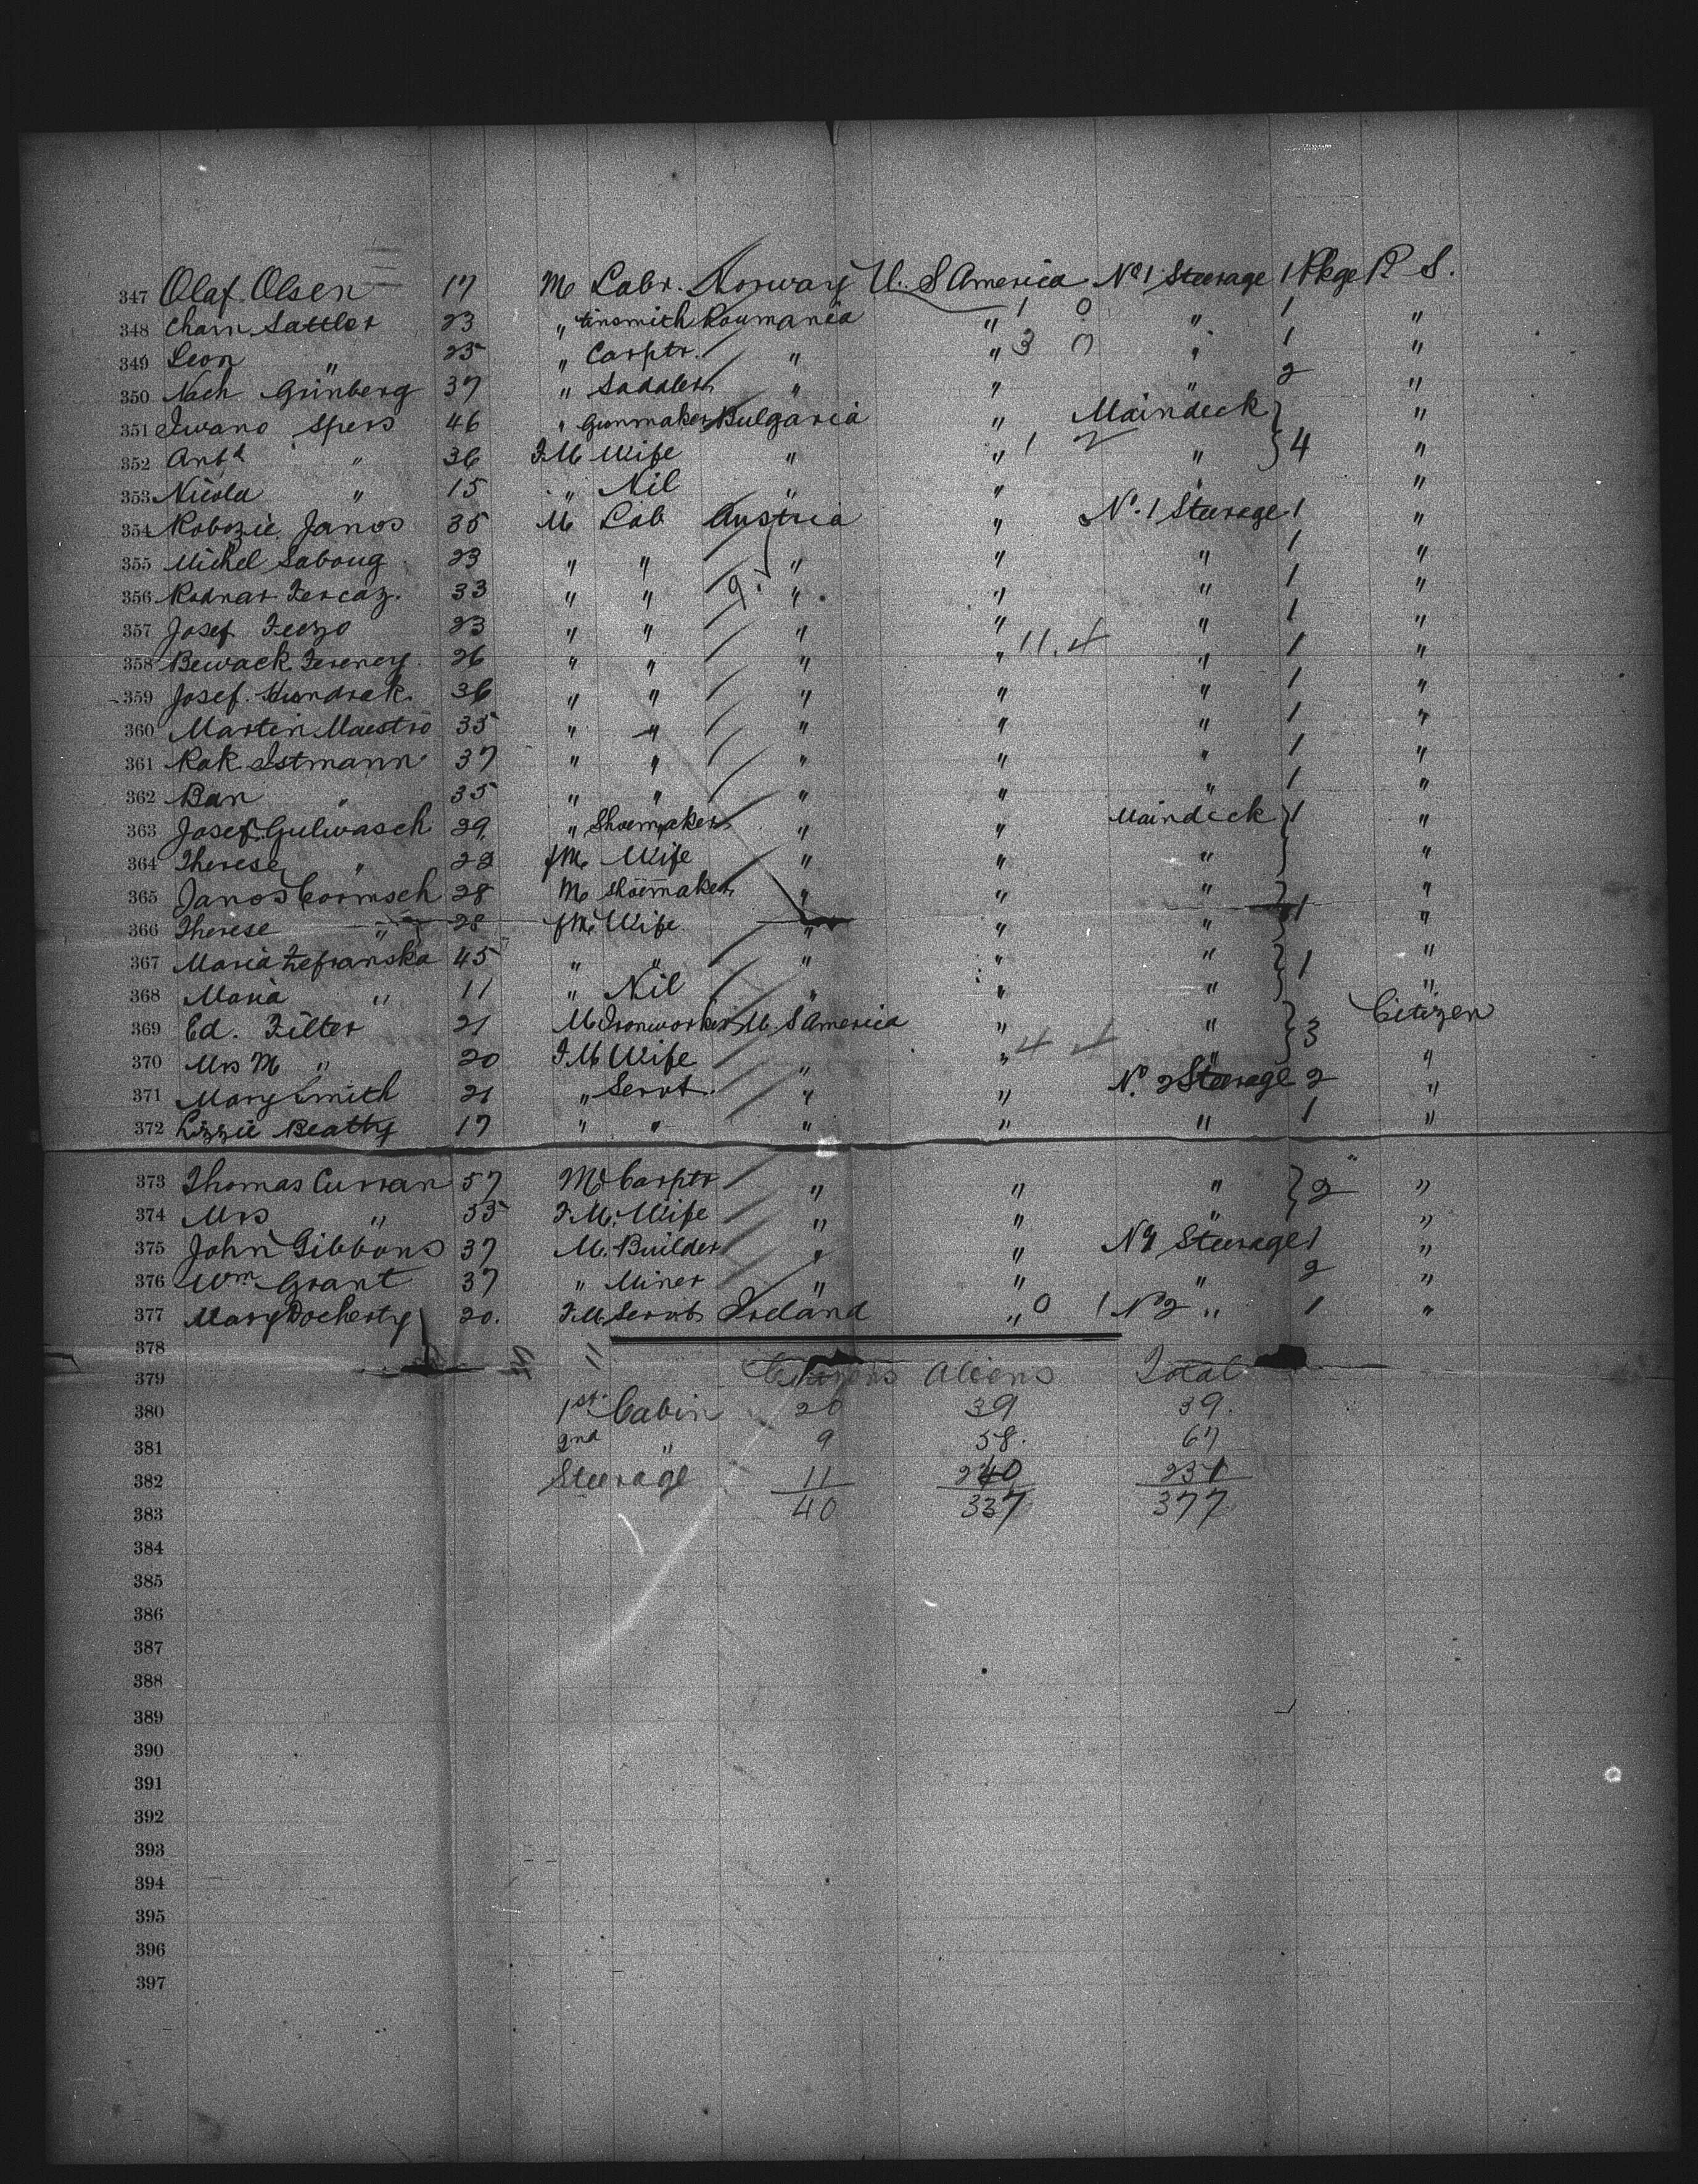 347 Olaf Olsen 17 M Labr. Norway U. S America No 1 Steerage 1 Pkge P S.
348 Charn Sattler 23 " tinsmith Roumania " 1 0 " 1 "
349 Leon " 25 " Carptr. " " 3 0 " 1 "
350 Nach Grünberg 37 " Saddler " " " 2 "
351 Iwano Spers 46 " Gunmaker Bulgaria " Maindeck "
352 " 36 F.M Wife " " 1 2 " } 4 "
353 Nicola " 15 " Nil " " " "
354 Robozie Janos 35 M Lab Austria " No. 1 Steerage 1 "
355 Michel Saboug 23 " " " " " 1 "
356 Rodnar Fercaz. 33 " " 9. " " " 1 "
357 Josef 23 " " " " " 1 "
358 Bewack Ferency 26 " " " " 11. 4 " 1 "
359 Josef Hundrak 36 " " " " " 1 "
360 Martin Maestro 35 " " " " " 1 "
361 Rak Istmann 37 " " " " " 1 "
362 Ban " 35 " " " " " 1 "
363 Josef Gulwasch 29 " Shoemaker " " Maindeck } 1 "
364 Therese " 28 fM Wife " " " "
365 Janos 28 M shoemaker " " " "
366 Therese " 28 fM Wife " " " } 1 "
367 Maria Zefranska 45 " " " " " } 1 "
368 Maria " 11 " Nil " " " "
369 Ed. Filter 21 M Ironworker U. S America " " } 3 Citizen
370 Mrs M " 20 F.M Wife " " 4 4 " "
371 Mary Smith 21 " Servt. " " No. 2 Steerage 2 "
372 Lizzie Beatty 17 " " " " " 1 "
373 Thomas Curran 57 M Carptr " " " } 2 "
374 Mrs " 55 F.M. Wife " " " "
375 John Gibbons 37 M. Builder " " No 1 Steerage 1 "
376 Wm Grant 37 " Miner " " " 2 "
377 Mary Docherty 20. F.M. Servt Ireland " 0 1 No 2 " 1 "
378
379 Citizens Aliens Total
380 1st Cabin 20 39 39.
381 2nd " 9 58. 67
382 Steerage 11 240 251
383 40 337 377
384
385
386
387
388
389
390
391
392
393
394
395
396
397